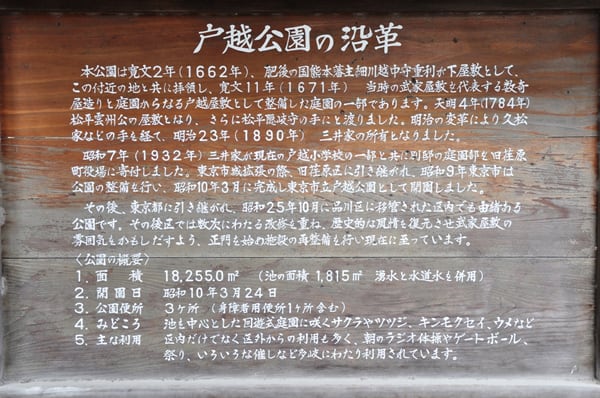 戸越公園の沿革
本公園は寛文2年(1662年)、肥後の国熊本藩主細川越中守重利が下屋敷として、
この付近の地と共に拝領し、寛文11年(1671年) 当時の武家屋敷を代表する数寄
屋造りと庭園からなる戸越屋敷として整備した庭園の一部であります。天明4年(1784年)
松平雲州公の屋敷となり、さらに松平隠岐守の手にと渡りました。明治の変革により久松
家などの手を経て、明治23年(1890年) 三井家の所有となりました。
昭和7年(1932年)三井家が現在の戸越小学校の一部と共に別邸の庭園部を旧荏原
町役場に寄付しました。東京市域拡張の際、旧荏原区に引き継がれ、昭和9年東京市は
公園の整備を行い、昭和10年3月に完成し東京市立戸越公園として開園しました。
その後、東京都に引き継がれ、昭和25年10月に品川区に移管された区内でも由緒ある
公園です。その後区では数次にわたる改修を重ね、歴史的な風情を復元させ武家屋敷の
雰囲気をかもしだすよう、正門を始め施設の再整備を行い現在に至っています。
〈公園の概要〉
1. 面 積 18,255.0㎡ (池の面積 1,815㎡ 湧水と水道水を併用)
2. 開園日 昭和10年3月24日
3. 公園便所 3ヶ所 (身障者用便所1ヶ所含む)
4. みどころ 池を中心とした回遊式庭園に咲くサクラやツツジ、キンモクセイ、ウメなど
5. 主な利用 区内だけでなく区外からの利用も多く、朝のラジオ体操やゲートボール、
祭り、いろいろな催しなど多岐にわたり利用されています。